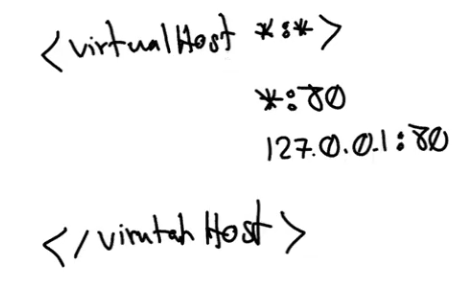 <virtualHost *:*>
*:80
127.0.0.1:80
</virutahHost>